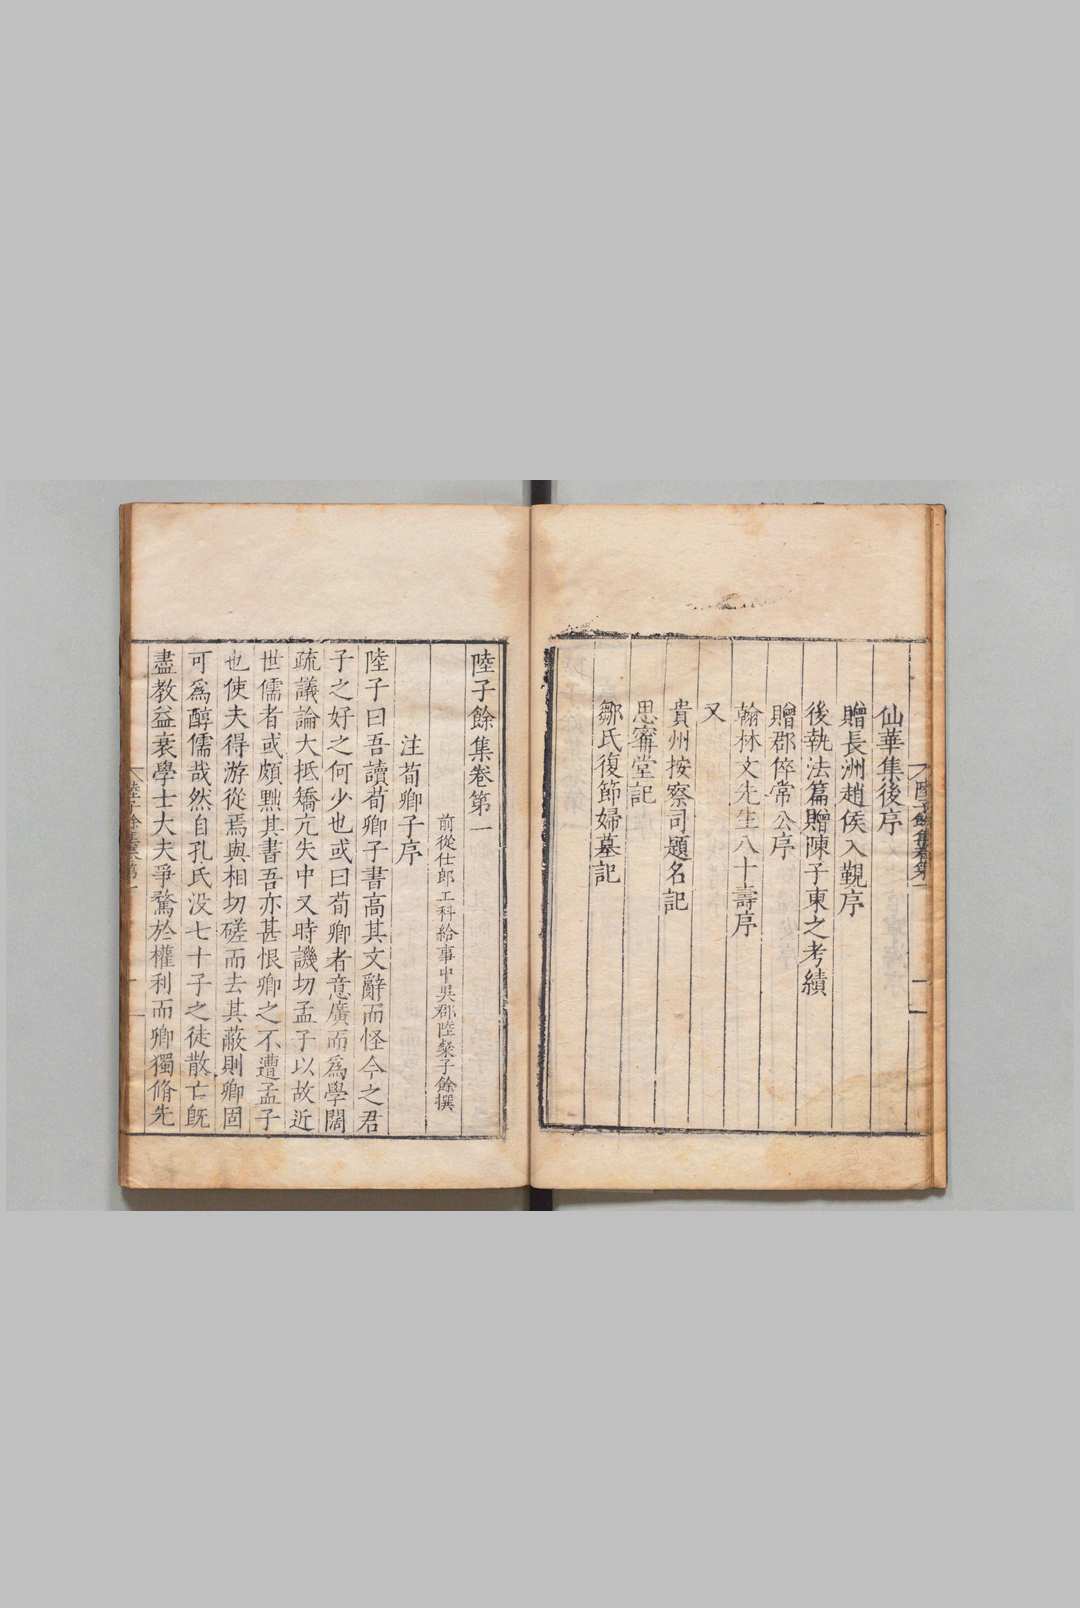 仙華集後序
贈長洲趙侯入覲序
後執法篇贈陳子東之考績
贈郡倅常公序
翰林文先生八十壽序
又
貴州按察司題名記
思審堂記
鄒氏復節婦墓記
陸子餘集卷第一
前從仕郎工科給事中吳郡陸粲子餘撰
注荀卿子序
陸子曰吾讀荀卿子書高其文辭而怪今之君
子之好之何少也或曰荀卿者意廣而爲學闊
疏議論大抵矯亢失中又時譏切孟子以故近
世儒者或頗黜其書吾亦甚恨卿之不遭孟子
也使夫得游從焉與相切磋而去其蔽則卿固
可爲醇儒哉然自孔氏没七十子之徒散亡旣
盡教益衰學士大夫爭騖於權利而卿獨脩先
陸子餘集卷第一